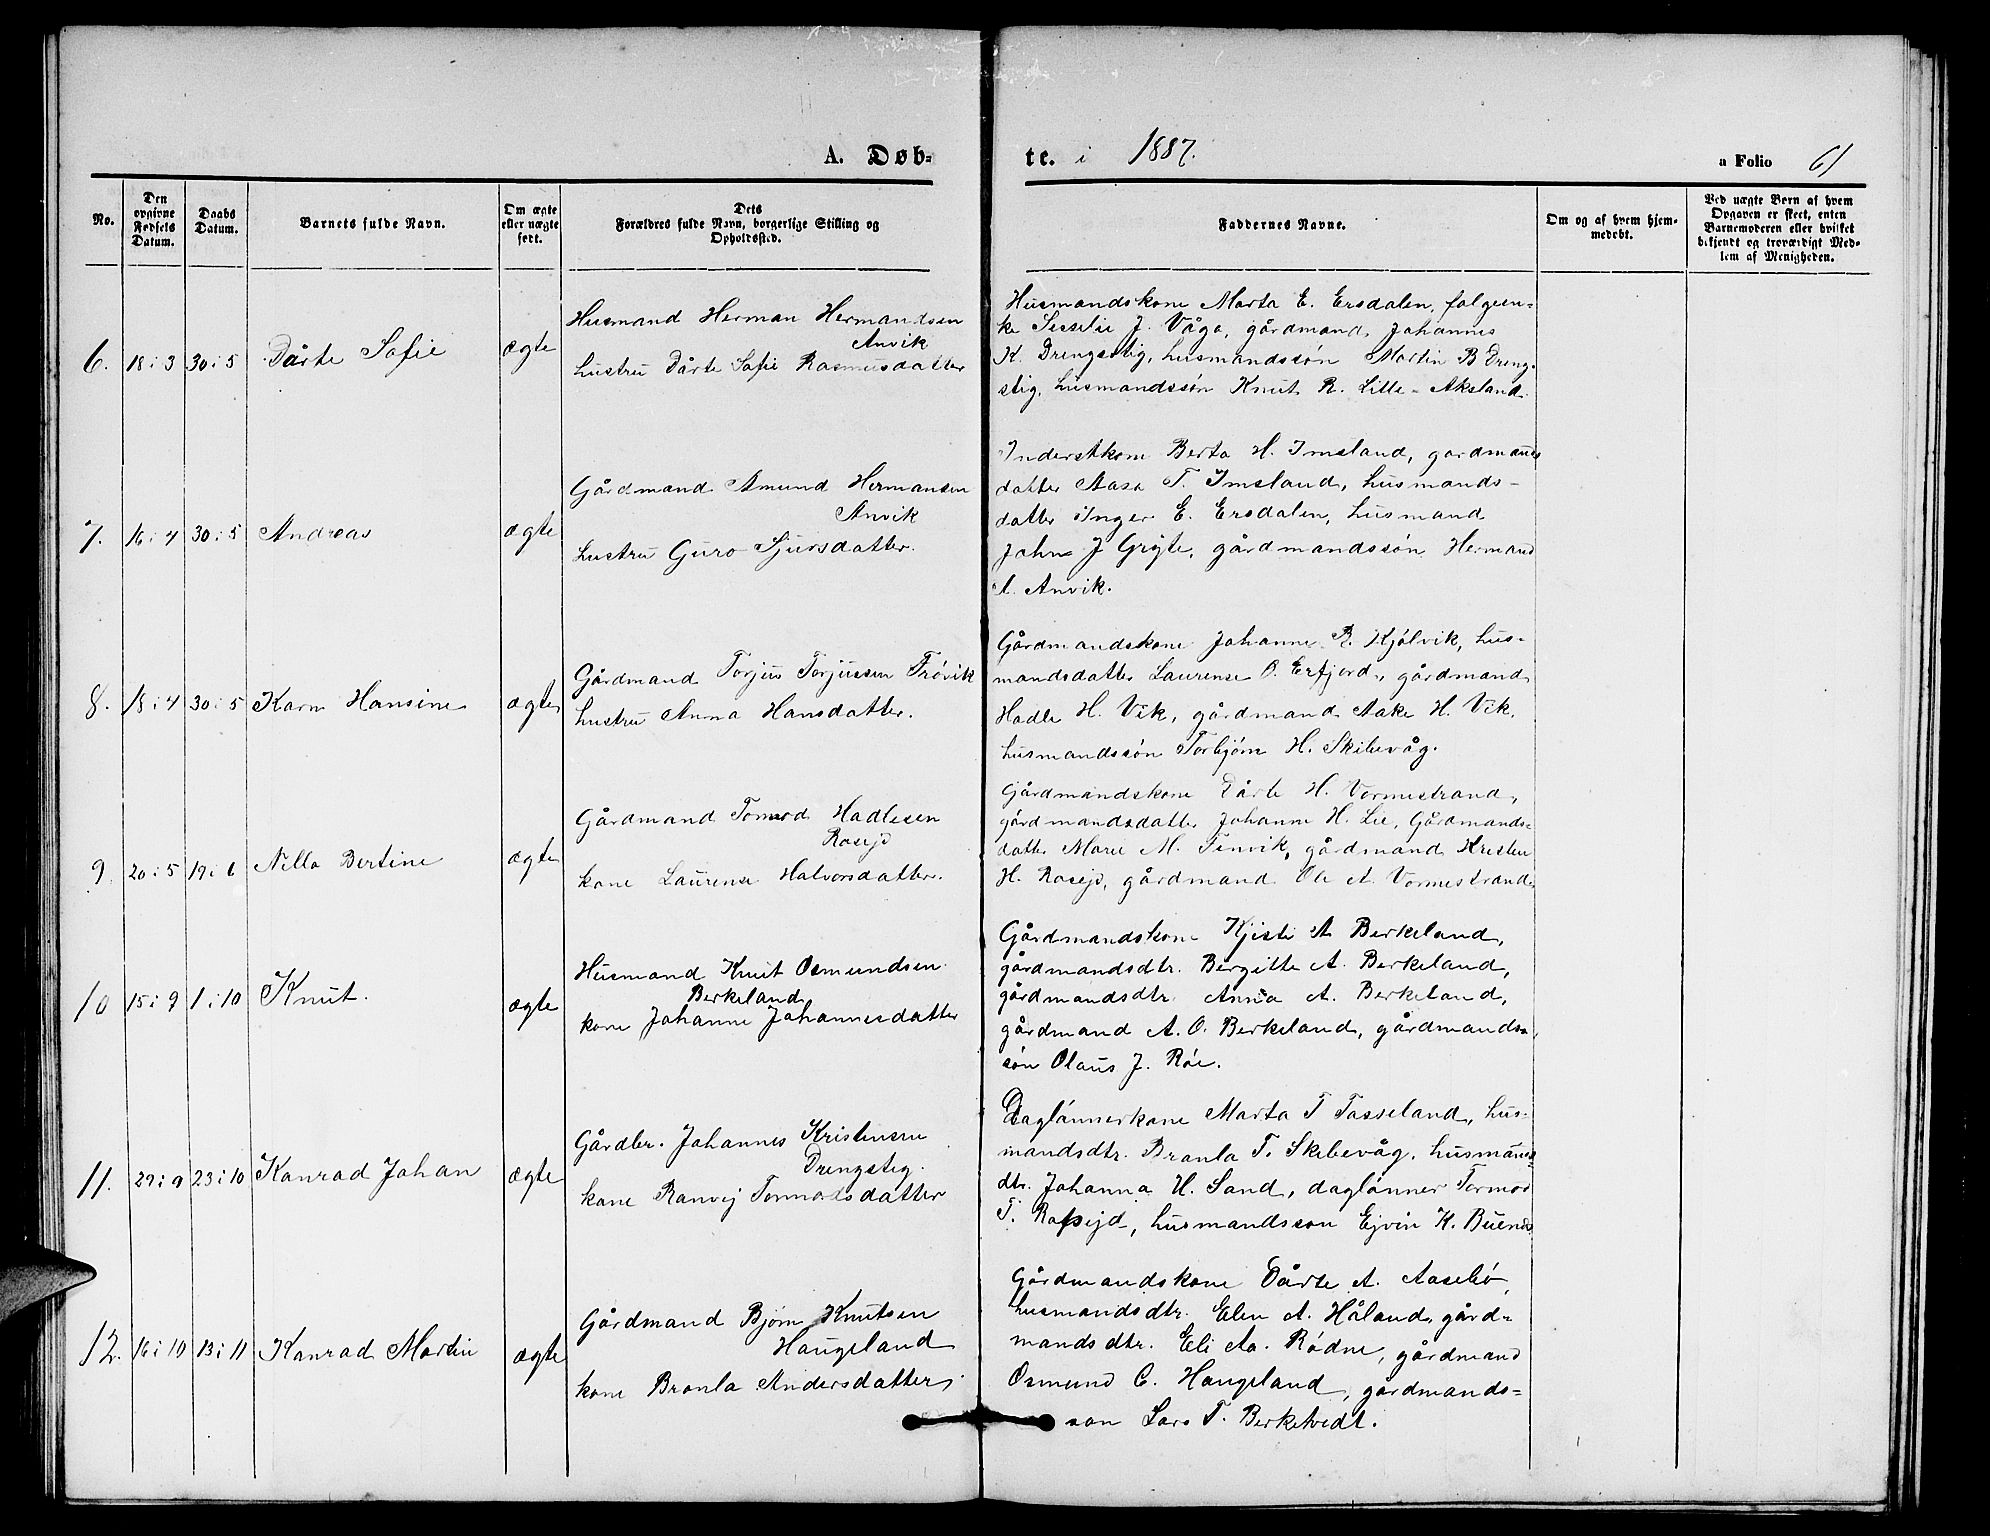 A. Døb-
te. i 1887.
a Folio 61
No.
Den opgivne Fødsels Datum.
Daabs Datum.
Barnets fulde Navn.
Om ægte eller uægte født.
Dets Forældres fulde Navn, borgerlige Stilling og Opholdssted.
Faddernes Navne.
Om og af hvem hjemmedøbt.
Ved uægte Børn af hvem Opgaven er skeet, enten Barnemoderen eller hvilket bekjendt og troværdigt Medlem af Menigheden.
6. 18 i 3 30 i 5 Dårte Sofie ægte
Husmand Herman Hermandsen
Anvik
hustru Dårte Sofie Rasmusdatter
Husmandskone Marta E. Ersdalen, folgeen-
ke Sesselie J. Våga, gårdmand Johannes
K. Drengstig, husmandssön Martin B Dreng-
stig, husmandssön Knut R. Lille-Aksland.
7. 16 i 4 30 i 5 Andreas ægte
Gårdmand Amund Hermansen
Anvik
hustru Guro Sjursdatter.
Inderstkone Berta H. Imsland, gardmands
datter Aasa T. Imsland, husmands-
datter Inger E. Ersdalen, husmand
John J Grigte, gårdmandssön Hermand
A. Anvik.
8. 18 i 4 30 i 5 Karn Hansine ægte
Gårdmand Torjus Torjussen Trövik
hustru Anna Hansdatter.
Gårdmandskone Johanne R. Kjölvik, hus-
mandsdatter Laurense O. Erfjord, gårdmand
Hadle H. Vik, gårdmand Aake H. Vik,
husmandssön Torbjörn H. Skibevåg.
9. 20 i 5 19 i 6 Nilla Bertine ægte
Gårdmand Tormod Hadlesen
Rosejd
kone Laurense Halvorsdatter.
Gårdmandskone Dårte H. Vormestrand,
gårdmandsdatter Johanne H. Lie, Gårdmands-
datter Marie M. Tinvik, gårdmand Kristen
H. Rosejd, gårdmand Ole A. Vormestrand.
10 15 i 9 1 i 10 Knut. ægte
Husmand Knut Osmundsen
Berkeland
kone Johanne Johannesdatter
Gårdmandskone Kjisti A Berkeland,
gårdmandsdtr. Bergitte A. Berkeland,
gårdmandsdtr. Anna A. Berkeland,
gårdmand A. O. Berkeland, gårdmands-
sön Olaus J. Röe.
11. 29 i 9 23 i 10 Konrad Johan ægte
Gårdbr. Johannes Kristensen
Drengstig.
kone Ranvej Tormodsdatter
Daglönnerkone Marta T Tasseland, hus-
mandsdtr. Branla T. Skibevåg, husmands-
dtr. Johanna H. Sand, daglönner Tormod
T. Rossejd, husmandsson Ejvin K. Buends
12. 16 i 10 13 i 11 Konrad Martin ægte
Gårdmand Bjørn Knutsen
Haugeland
kone Branla Andersdatter.
Gårdmandskone Dårte A. Aasebö,
husmandsdtr. Elen A. Håland, gård-
mandsdtr. Eli Aa. Rödne, gårdmand
Osmund C. Haugeland, gårdmands-
son Lars T. Berketvedt.